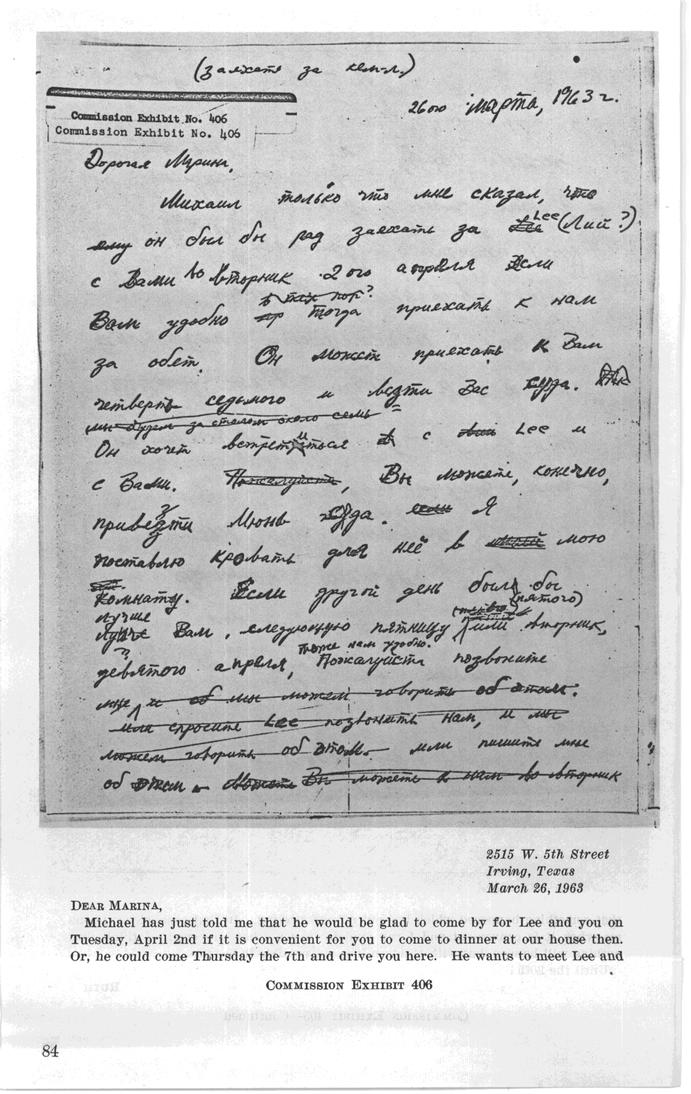 (заехать за кем-л.)
Commission Exhibit No. 406
Commission Exhibit No. 406
26ого марта, 1963 г.
Дорогая Марина,
Михаил только что мне сказал, что
ему он был бы рад заехать за Lee Lee (Лий?)
с Вами во вторник 2ого апреля Если
в тех пор?
Вам удобно пр тогда приехать к нам
за обет. Он может приехать к Вам
четверть седьмого и везти Вас сюда.
мы будем за столом около семь
Он хочет встретиться с Lee и
с Вами. Пожалуйста, Вы можете, конечно,
привезти Июнь сюда. если Я
поставлю кровать для неё в мою
комнату. Если другой день была бы
лучше (пятого)
лучше Вам, следующую пятницу или вторник,
тоже нам удобно.
девятого апреля, Пожалуйста позвоните
мне и об мы можем говорить об этом.
или спросите Lee позвонить нам, и мы
можем говорить об этом. или пишите мне
об этом Можете Вы можете к нам во вторник
2515 W. 5th Street
Irving, Texas
March 26, 1963
DEAR MARINA,
Michael has just told me that he would be glad to come by for Lee and you on
Tuesday, April 2nd if it is convenient for you to come to dinner at our house then.
Or, he could come Thursday the 7th and drive you here. He wants to meet Lee and
COMMISSION EXHIBIT 406
84